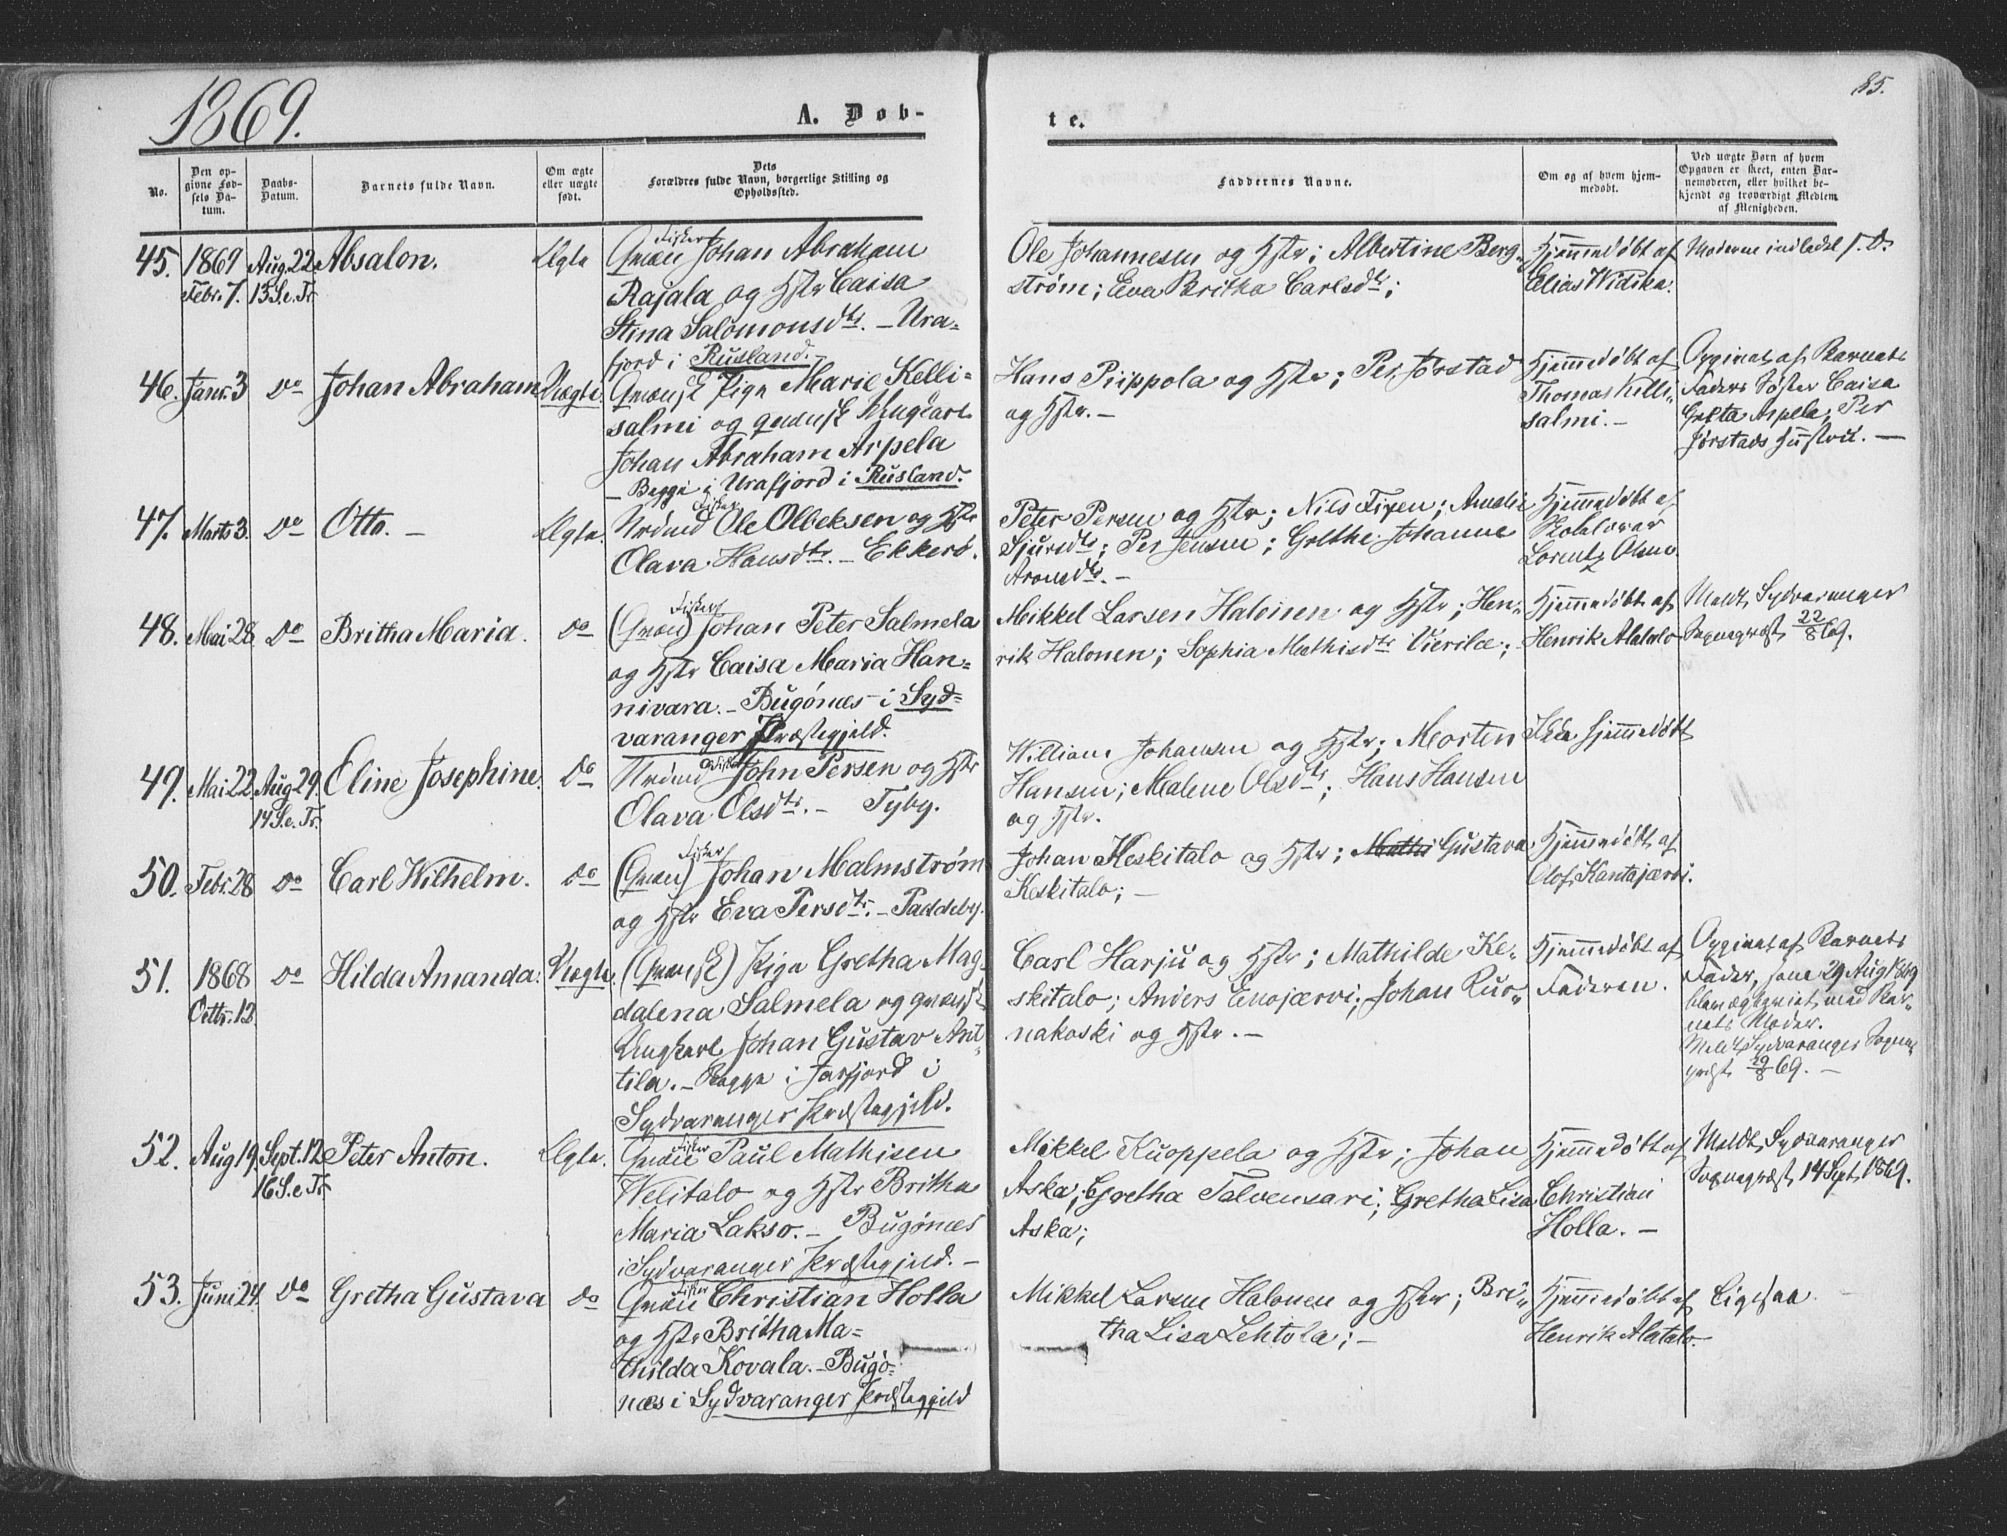 1869.
A. Døb-
te.
85.
No.
Den op-
givne Fød-
sels Da-
tum.
Daabs-
Datum.
Barnets fulde Navn.
Om ægte
eller uægte
født.
Dets
Forældres fulde Navn, borgerlige Stilling og
Opholdssted.
Faddernes Navne.
Om og af hvem hjem-
medøbt.
Ved uægte Børn af hvem
Opgaven er skeet, enten Bar-
nemoderen, eller hvilket be-
kjendt og troværdigt Medlem
af Menigheden.
45. 1869 Aug. 22 Absalon. Ægte
Febr. 7. 13 S. e. Tr.
Fisker
Qvæn Johan Abraham
Rajala og Hstr Caisa
Stina Salomonsdtr. - Ura-
fjord i Rusland.
Ole Johannesen og Hstr; Albertine Berg-
strøm; Eva Britha Carlsdtr;
Hjemmedøbt af
Elias Widika.
Moderne indledet s. D.
46. Janr. 3 Do Johan Abraham Uægte
Qvænsk Pige Marie Kelli-
salmi og qvænsk Ungkarl
Johan Abraham Arpela
- Begge i Urafjord i Rusland.
Hans Piippola og Hstr; Per Jørstad
og Hstr. -
Hjemmedøbt af
Thomas Kelli-
salmi. -
Opgivet af Barnets
Faders Søster Caisa
Greta Arpela, Per
Jørstads Hustru. -
47. Marts 3. Do Otto. - Ægte.
Fisker
Nrdmd Ole Olbeksen og Hstr
Olava Hansdtr. - Ekkerø.
Peter Persen og Hstr; Nils Fixen; Amalie
Sjursdtr; Per Jensen; Grethe Johanne
Aronsdtr. -
Hjemmedøbt af
Skolelærer
Lorentz Olsen.
48. Mai 28 Do Britha Maria. Do
Fisker
(Qvæn) Johan Peter Salmela
og Hstr Caisa Maria Han-
nivara. - Bugønæs - i Syd-
varanger Præstegjeld.
Mikkel Larsen Halonen og Hstr; Hen-
rik Halonen; Sophia Mathisdtr Vierilæ;
Hjemmedøbt af
Henrik Alatalo
Meldt Sydvaranger
Sognepræst 22/8 69.
49. Mai 22. Aug. 29. Eline Josephine. Do
14 S. e. Tr.
Fisker
Nrdmd John Persen og Hstr
Olava Olsdtr. - Tyby.
William Johansen og Hstr; Morten
Hansen; Malene Olsdtr; Hans Hansen
og Hstr.
Ikke hjemmedøbt
50. Febr. 28 Do Carl Wilhelm. Do
Fisker
(Qvæn) Johan Malmstrøm
og Hstr Eva Persdtr. - Paddeby.
Johan Keskitalo og Hstr; Mathi Gustava
Keskitalo; -
Hjemmedøbt af
Olof Kantajærvi.
51. 1868 Do Hilda Amanda. Uægte.
Octbr. 12.
(Qvænsk) Pige Gretha Mag-
dalena Salmela og qvænsk
Ungkarl Johan Gustav Ant-
tila. - Begge i Jarfjord i
Sydvaranger Præstegjeld.
Carl Harju og Hstr; Mathilde Ke-
skitalo; Anders Enojærvi; Johan Ruo-
nakoski og Hstr. -
Hjemmedøbt af
Faderen.
Opgivet af Barnets
Fader, som 29 Aug 1869
blev ægteviet med Bar-
nets Moder.
Meldt Sydvaranger Sogne-
præst 29/8 69. -
52. Aug 19. Sept. 12 Peter Anton. Ægte.
16 S. e Tr.
Fisker
Qvæn Paul Mathisen
Welitalo og Hstr Britha
Maria Lakso. - Bugønæs
i Sydvaranger Præstegjeld. -
Mikkel Kuoppela og Hstr; Johan
Aska; Gretha Talvensari; Gretha Lisa
Aska;
Hjemmedøbt af
Christian
Holla. -
Meldt Sydvaranger
Sognepræst 14 Sept. 1869.
53. Juni 24. Do Gretha Gustava Do
Fisker
Qvæn Christian Holla
og Hstr Britha Ma-
thilda Kovala. - Bugø-
næs i Sydvaranger Præstegjeld
Mikkel Larsen Halonen og Hstr; Bri-
tha Lisa Lehtola; -
Hjemmedøbt af
Henrik Alatalo.
Ligesaa